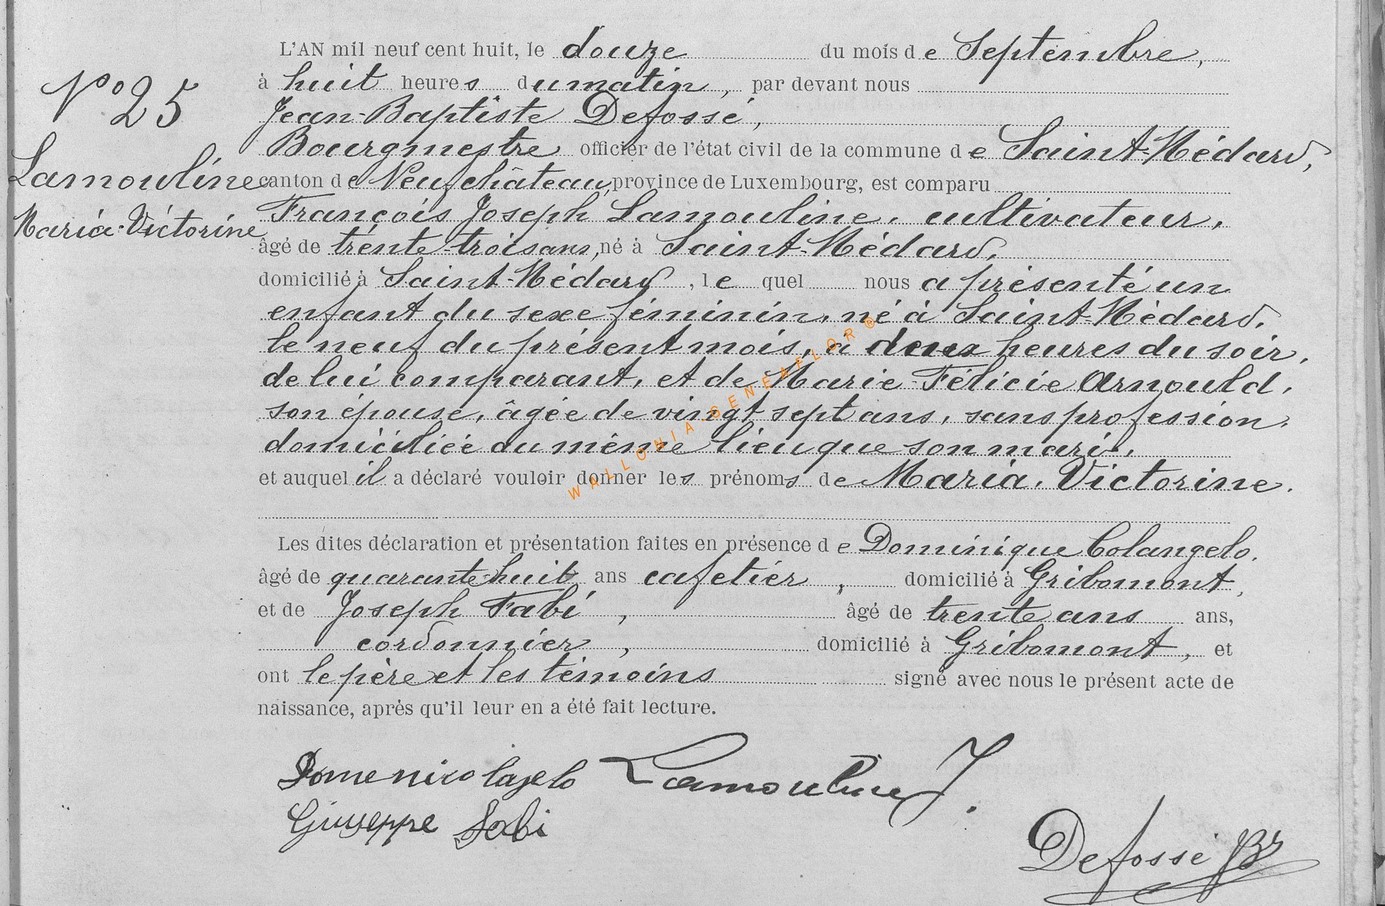 L'AN mil neuf cent huit, le douze du mois de Septembre,
à huit heures du matin, par devant nous
Jean-Baptiste Defossé,
Bourgmestre officier de l'état civil de la commune de Saint-Médard,
canton de Neufchâteau, province de Luxembourg, est comparu
François Joseph Lamouline, cultivateur,
âgé de trente-trois ans, né à Saint-Médard,
domicilié à Saint-Médard, le quel nous a présenté un
enfant du sexe féminin, né à Saint-Médard,
le neuf du présent mois, à deux heures du soir,
de lui comparant, et de Marie-Félicie Arnould,
son épouse, âgée de vingt sept ans, sans profession,
domiciliée au même lieu que son mari,
et auquel il a déclaré vouloir donner les prénoms de Maria, Victorine.
Les dites déclaration et présentation faites en présence de Dominique Colangelo,
âgé de quarante huit ans cafetier, domicilié à Gribomont,
et de Joseph Fabi, âgé de trente ans ans,
cordonnier, domicilié à Gribomont, et
ont le père et les témoins signé avec nous le présent acte de
naissance, après qu'il leur en a été fait lecture.
N° 25
Lamouline
Maria-Victorine
Lamouline J.
Giuseppe Fabi
Defossé
WALLONIA GENEAFLOR ®